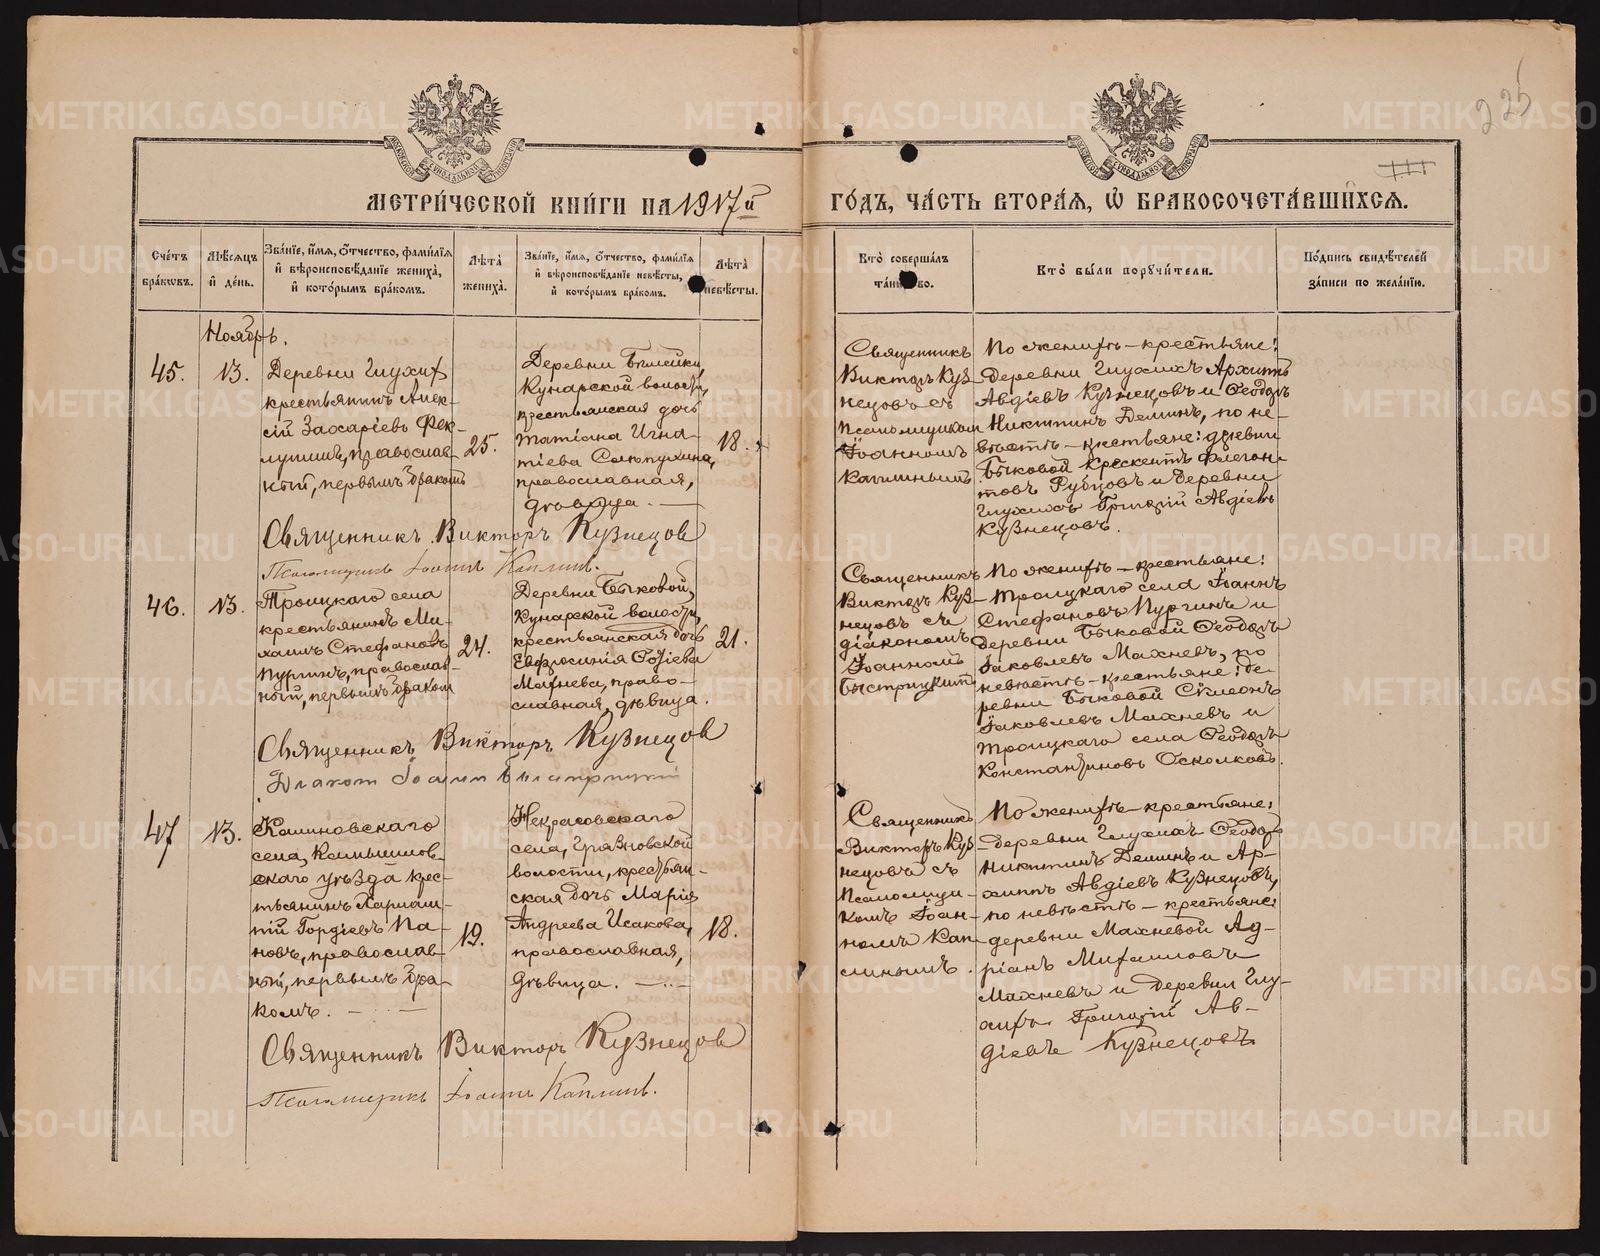 225
МЕТРИ́ЧЕСКОЙ КНИ́ГИ НА 1917й
ГО́ДЪ, ЧА́СТЬ ВТОРА́Я, Ѽ БРАКОСОЧЕТА́ВШИХСЯ.
Сче́тъ бра́кѡвъ.
Мѣ́сяцъ и҆ де́нь.
Зва́нїе, и҆́мя, ѻ҆́тчество, фами́лїя
и҆ вѣроисповѣ́данїе жениха̀,
и҆ кото́рымъ бра́комъ.
Лѣ́та жениха̀.
Зва́нїе, и҆́мя, ѻ҆́тчество, фами́лїя
и҆ вѣроисповѣ́данїе невѣ́сты,
и҆ кото́рымъ бра́комъ.
Лѣ́та невѣ́сты.
Кто̀ соверша́лъ
та́инство.
Кто̀ бы́ли порꙋчи́тели.
По́дпись свидѣ́телей
за́писи по жела́нїю.
Ноябрь.
45.
13.
Деревни Глухих
крестьянинъ Алек-
сій Захаріевъ Фек-
лушинъ, православ-
ный, первымъ бракомъ
25.
Деревни Бѣлейки,
Кунарской волости,
крестьянская дочь
Татіана Игна-
тіева Салопухина,
православная,
дѣвица.
18.
Священникъ
Викторъ Куз-
нецовъ съ
псаломщикомъ
Іоанномъ
Каплинымъ
По женихѣ – крестьяне:
деревни Глухихъ Архиппъ
Авдіевъ Кузнецовъ и Ѳеодоръ
Никитинъ Деминъ, по не-
вѣстѣ – крестьяне: деревни
Быковой Крескентъ Флегон-
товъ Рубцовъ и деревни
Глухихъ Григорій Авдіевъ
Кузнецовъ.
Священникъ Викторъ Кузнецов
Псаломщикъ Іоаннъ Каплинъ.
46.
13.
Троицкаго села
крестьянинъ Ми-
хаилъ Стефановъ
Пургинъ, православ-
ный, первымъ браком
24.
Деревни Быковой,
Кунарской волости,
крестьянская дочь
Евфросинія
Махнева, право-
славная, дѣвица.
21.
Священникъ
Викторъ Куз-
нецовъ съ
діакономъ
Іоанномъ
Быстрицкимъ
По женихѣ – крестьяне:
Троицкаго села Іоаннъ
Стефановъ Пургинъ и
деревни Быковой Ѳеодоръ
Іаковлевъ Махневъ, по
невѣстѣ – крестьяне: де-
ревни Быковой Сѵмеонъ
Іаковлевъ Махневъ и
Троицкаго села Ѳеодоръ
Константиновъ Осколковъ.
Священникъ Викторъ Кузнецов
Диакон Іоанн Быстрицкий
47
13.
Калиновскаго
села, Камышлов-
скаго уѣзда крес-
тьянинъ Харлам-
пій Гордіевъ Па-
новъ, православ-
ный, первымъ бра-
комъ.
19.
Некрасовскаго
села, Грязновской
волости, крестьян-
ская дочь Марія
Андреева Исакова,
православная,
дѣвица.
18.
Священникъ
Викторъ Куз-
нецовъ съ
псаломщи-
комъ Іоан-
номъ Кап-
линымъ.
По женихѣ – крестьяне:
деревни Глухихъ Ѳеодоръ
Никитинъ Деминъ и Ар-
хиппъ Авдіевъ Кузнецовъ,
по невѣстѣ – крестьяне:
деревни Махневой Ад-
ріанъ Михаиловъ
Махневъ и деревни Глу-
хихъ Григорій Ав-
діевъ Кузнецовъ.
Священникъ Викторъ Кузнецов
Псаломщикъ Іоаннъ Каплинъ.
METRIKI.GASO-URAL.RU